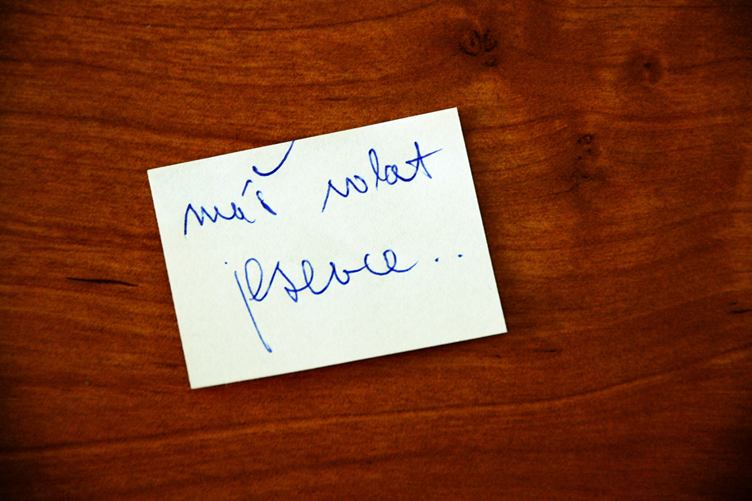 máš volat
jesevce..